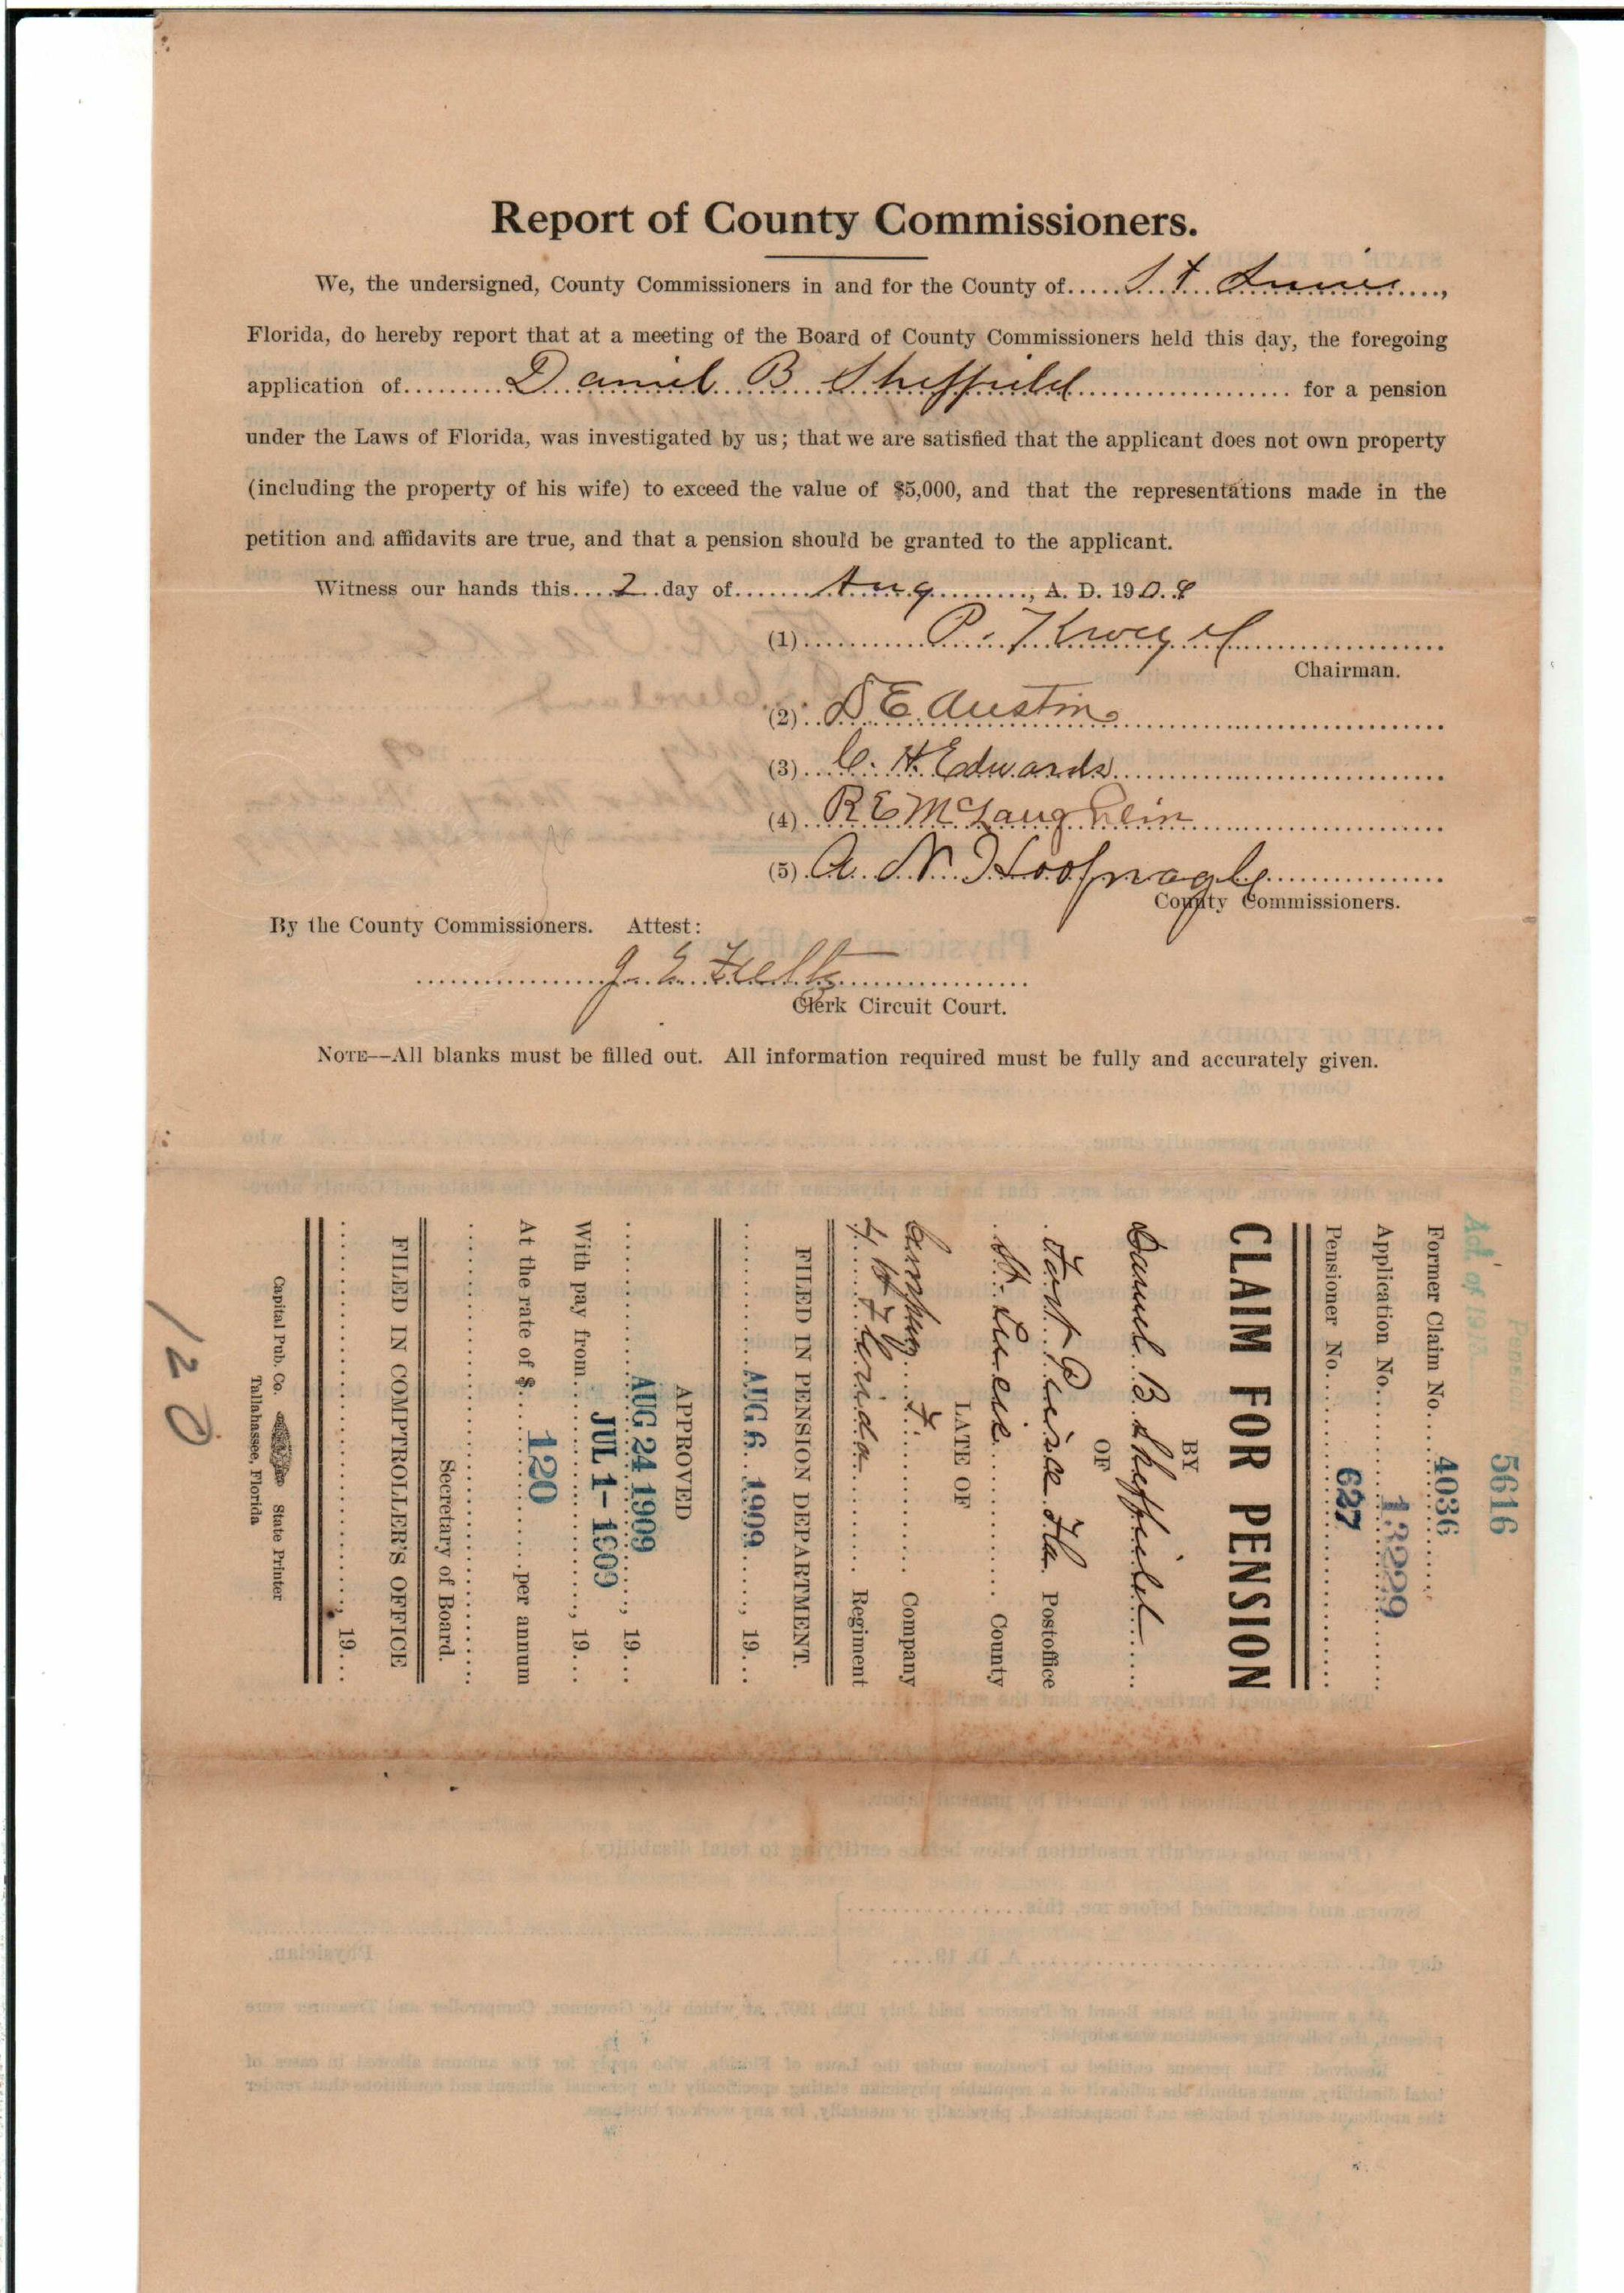 Report of County Commissioners.
We, the undersigned, County Commissioners in and for the County of..... St Lucie.....,
Florida, do hereby report that at a meeting of the Board of County Commissioners held this day, the foregoing
application of......... Daniel B Sheffield ..................... for a pension
under the Laws of Florida, was investigated by us; that we are satisfied that the applicant does not own property
(including the property of his wife) to exceed the value of $5,000, and that the representations made in the
petition and affidavits are true, and that a pension should be granted to the applicant.
Witness our hands this....2..day of....... Aug .........., A. D. 190.9
(1)........... P. Kroegel ..................
Chairman.
(2).. D E Austin
(3).. C. H. Edwards
(4).. R E McLaughlin
(5). A. N. Hoofnagle
County Commissioners.
By the County Commissioners. Attest:
J. E. Fultz
Clerk Circuit Court.
NOTE—All blanks must be filled out. All information required must be fully and accurately given.
5616
Act of 1913
Former Claim No.... 4036
Application No.......... 13229
Pensioner No......... 627
CLAIM FOR PENSION
BY
Daniel B. Sheffield
OF
Fort Pierce Fla. Postoffice
St. Lucie ............ County
LATE OF
Company
Florida .......... Regiment
FILED IN PENSION DEPARTMENT.
AUG 6 1909 ....., 19...
APPROVED
AUG 24 1909 ....., 19...
With pay from JUL 1-1909 ....., 19...
At the rate of $.... 120 ......per annum
Secretary of Board.
FILED IN COMPTROLLER'S OFFICE
, 19...
Capital Pub. Co. State Printer
Tallahassee, Florida
120